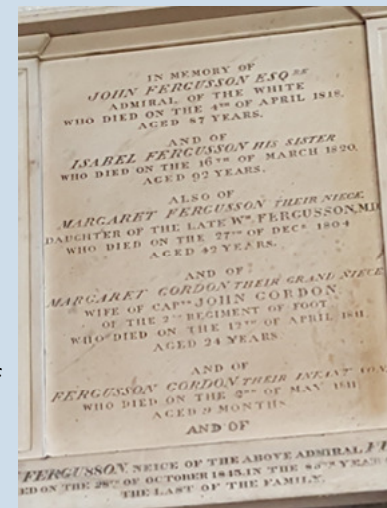 IN MEMORY OF
JOHN FERGUSSON ESQRE
ADMIRAL OF THE WHITE
WHO DIED ON THE 4TH OF APRIL 1818.
AGED 87 YEARS.
AND OF
ISABEL FERGUSSON HIS SISTER
WHO DIED ON THE 16TH OF MARCH 1820,
AGED 92 YEARS.
ALSO OF
MARGARET FERGUSSON THEIR NIECE
DAUGHTER OF THE LATE WM. FERGUSSON, M.D.
WHO DIED ON THE 27TH OF DECR. 1804
AGED 42 YEARS.
AND OF
MARGARET GORDON THEIR GRAND NIECE
WIFE OF CAPTN JOHN GORDON,
OF THE 2ND REGIMENT OF FOOT
WHO DIED ON THE 12TH OF APRIL 1811.
AGED 24 YEARS.
AND OF
FERGUSSON GORDON THEIR INFANT SON,
WHO DIED ON THE 2ND OF MAY 1811
AGED 9 MONTHS.
AND OF
FERGUSSON, NEICE OF THE ABOVE ADMIRAL
ED ON THE 28TH OF OCTOBER 1843, IN THE YEAR
THE LAST OF THE FAMILY.